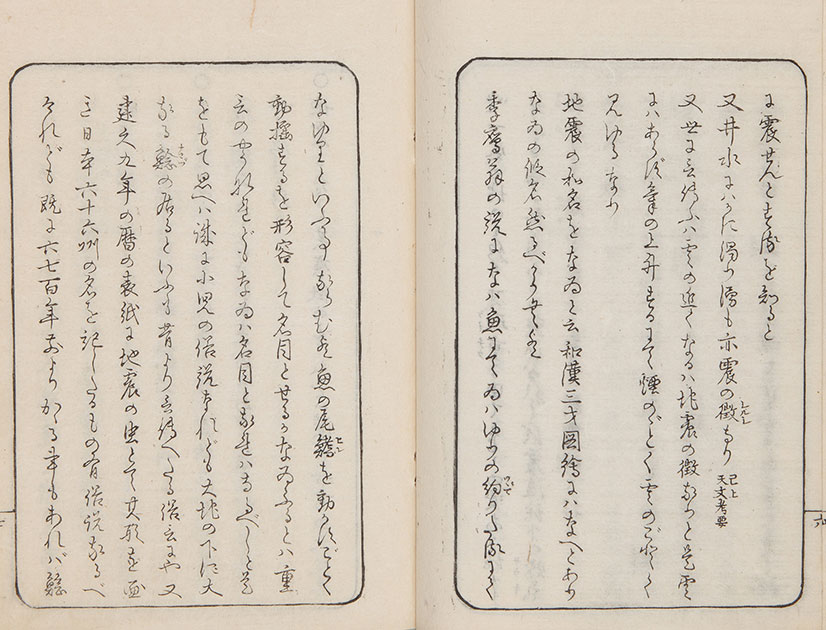 に震せんとするを知ると
又井水にハかに濁り湧も亦震の徴なり 已上天文考要
又世に云伝ふハ雲の近くなるハ地震の徴なりと是雲
にハあらず気の上升するにて煙のごとく雲のごとく
見ゆるなり
地震の和名をなゐと云和漢三才図絵にハなへとあり
なゐの仮名然るべからむ
季鷹翁の説になハ魚にてゐハゆりの約りたる
なゆりといふ事ならむ魚の尾鰭を動かすごとく
動揺するを形容して名目とせるかなゐふるとハ重
言のやうなれどもなゐハ名目となれハなるべしと
をもて思へハ誠に小児の俗説なれども大地の下に大
なる鯰の居るといふも昔より云伝へたる俗言にや又
建久九年の暦の表紙に地震の虫とて其形を画
き日本六十六州の名を記したるもの有俗説なるべ
けれども既に六七百年前よりかゝる事もあれバ鯰